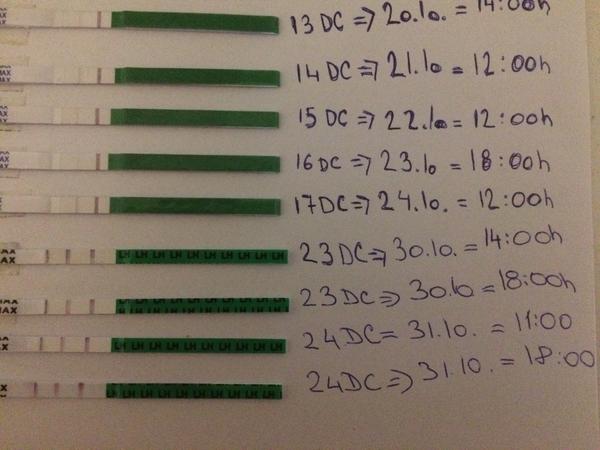 13 DC => 20.10. = 14:00h
MAX
14 DC => 21.10 = 12:00h
MAX
15 DC => 22.10 = 12:00h
MAX
16 DC => 23.10 = 18:00h
MAX
17 DC => 24.10. = 12:00h
MAX LH LH LH LH LH LH LH LH LH
23 DC => 30.10. = 14:00h
MAX LH LH LH LH LH LH LH LH LH
23 DC => 30.10 = 18:00h
MAX LH LH LH LH LH LH LH LH LH
24 DC = 31.10. = 11:00
LH LH LH LH LH LH LH LH LH LH
24 DC => 31.10. = 18:00